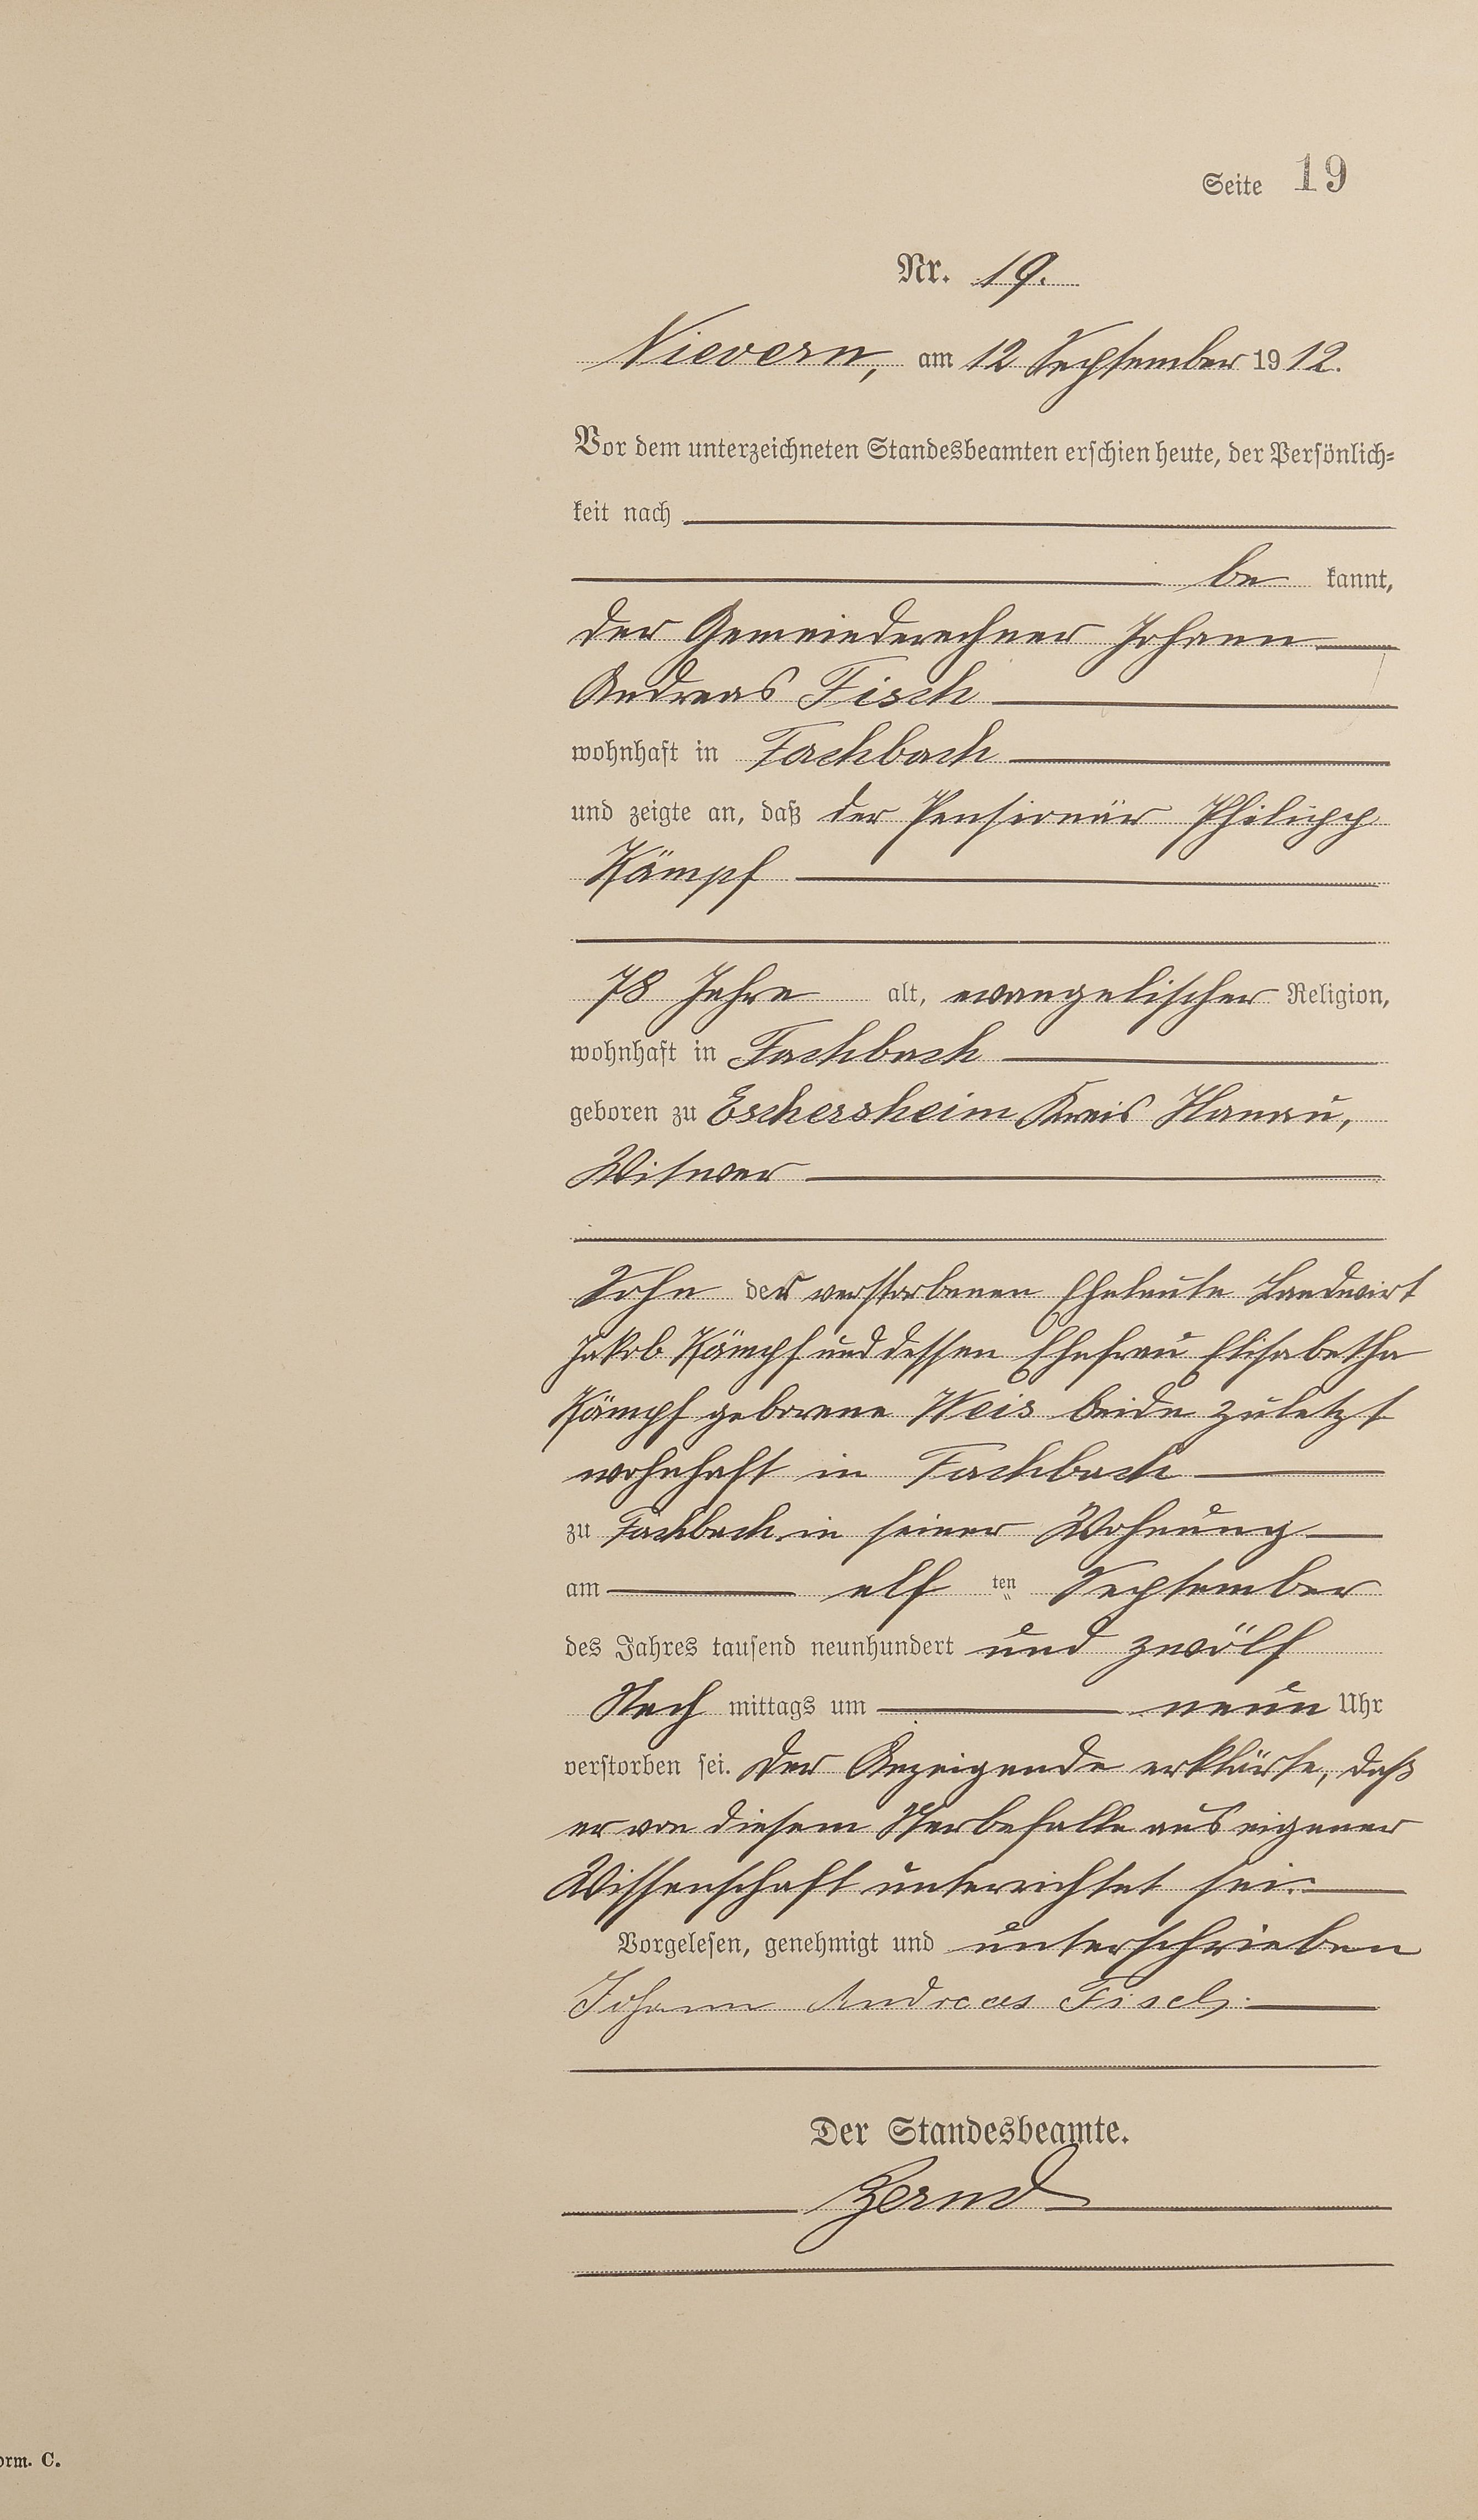 Seite 19
Nr. 19.
Nievern, am 12 September 1912.
Vor dem unterzeichneten Standesbeamten erschien heute, der Persönlich=
keit nach
be kannt,
der Gemeinderechner Johann
Andreas Fisch
wohnhaft in Fachbach
und zeigte an, daß der Pensionär Philipp
Kämpf
78 Jahre alt, evangelischer Religion,
wohnhaft in Fachbach
geboren zu Eschersheim Kreis Hanau,
Witwer
Sohn der verstorbenen Eheleute Landwirt
Jakob Kämpf und dessen Ehefrau Elisabetha
Kämpf geborene Weis beide zuletzt
wohnhaft in Fachbach
zu Fachbach in seiner Wohnung
am elf ten September
des Jahres tausend neunhundert und zwölf
Nach mittags um neun Uhr
verstorben sei. Der Anzeigende erklärte, daß
er von diesem Sterbefalle aus eigener
Wissenschaft unterrichtet sei.
Vorgelesen, genehmigt und unterschrieben
Johann Andreas Fisch.
Der Standesbeamte.
orm. C.